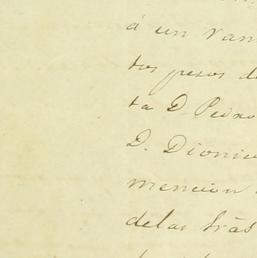 á un ran
tos pesos d
ta D. Pedro
D. Dionici
mencion
delas hrãs